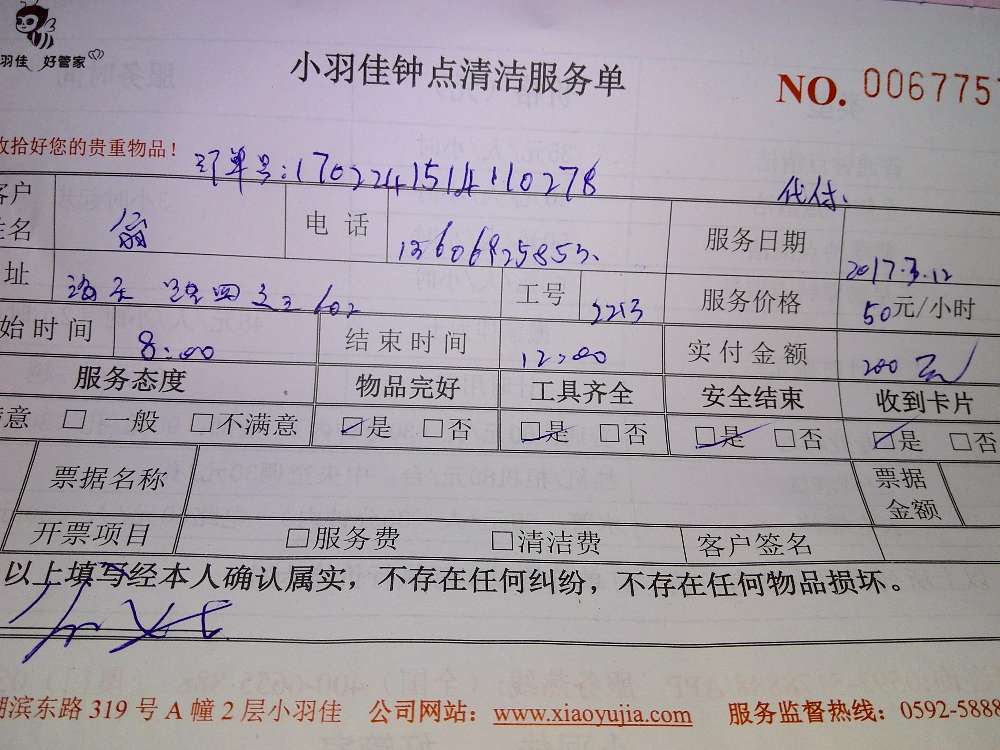 羽佳 好管家
小羽佳钟点清洁服务单
NO. 0067757
收拾好您的贵重物品！
订单号:170224151410278 代付.
客户姓名 电话 服务日期 2017.3.12
址 602 工号 2213 服务价格 50元/小时
始时间 8:00 结束时间 12:00 实付金额 200元
服务态度 物品完好 工具齐全 安全结束 收到卡片
满意 □一般 □不满意 ☑是 □否 ☑是 □否 ☑是 □否 ☑是 □否
票据名称 票据金额
开票项目 □服务费 □清洁费 客户签名
以上填写经本人确认属实，不存在任何纠纷，不存在任何物品损坏。
湖滨东路 319 号 A 幢 2 层小羽佳 公司网站：www.xiaoyujia.com 服务监督热线：0592-5888